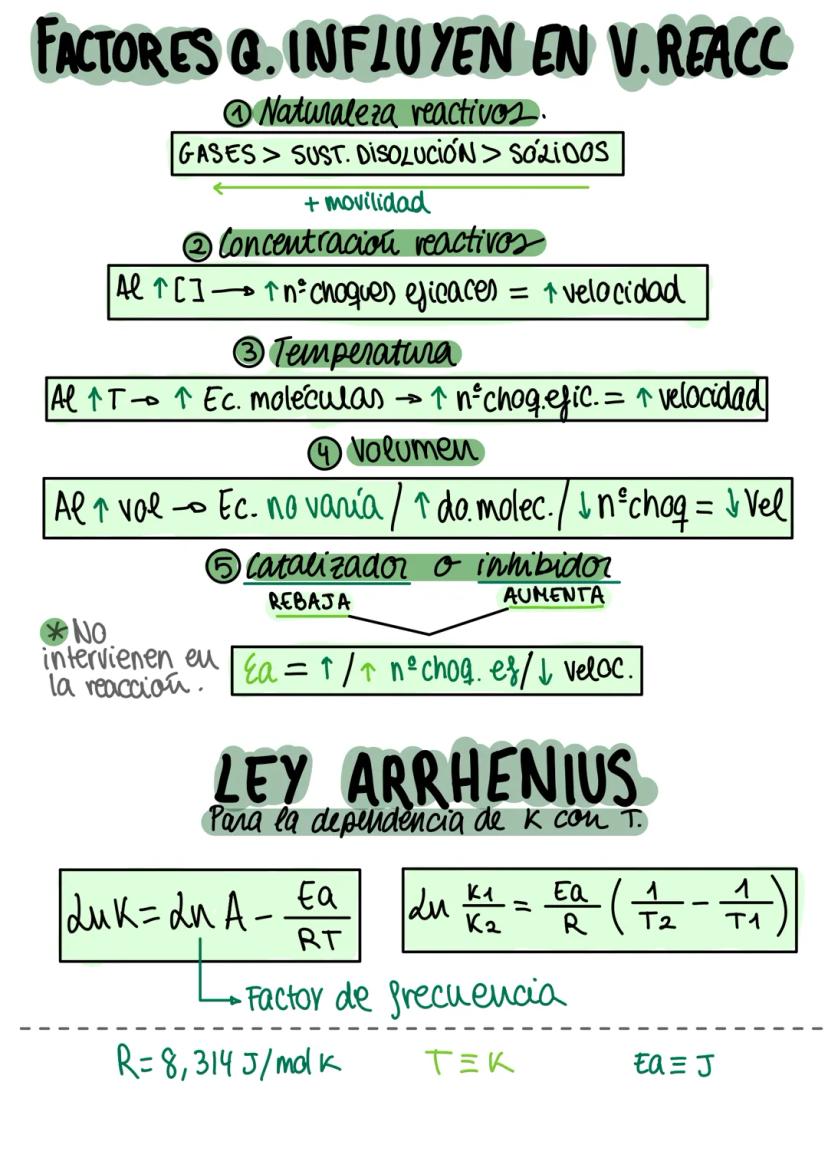 FACTORES Q. INFLUYEN EN V.REACC
① Naturaleza reactivos.
GASES > SUST. DISOLUCIÓN > SÓLIDOS
+ movilidad
② Concentración reactivos
Al ↑ [ ] → ↑ nº choques eficaces = ↑ velocidad
③ Temperatura
Al ↑ T → ↑ Ec. moléculas → ↑ nº choq.efic. = ↑ velocidad
④ Volumen
Al ↑ vol → Ec. no varía / ↑ do. molec. / ↓ nº choq = ↓ Vel
⑤ Catalizador o inhibidor
REBAJA AUMENTA
* No
intervienen en
la reacción.
Ea = ↑ / ↑ nº choq. ef / ↓ veloc.
LEY ARRHENIUS
Para la dependencia de K con T.
Ln K = Ln A - Ea / RT
Ln K1 / K2 = Ea / R ( 1 / T2 - 1 / T1 )
Factor de frecuencia
R = 8,314 J/mol K T ≡ K Ea ≡ J